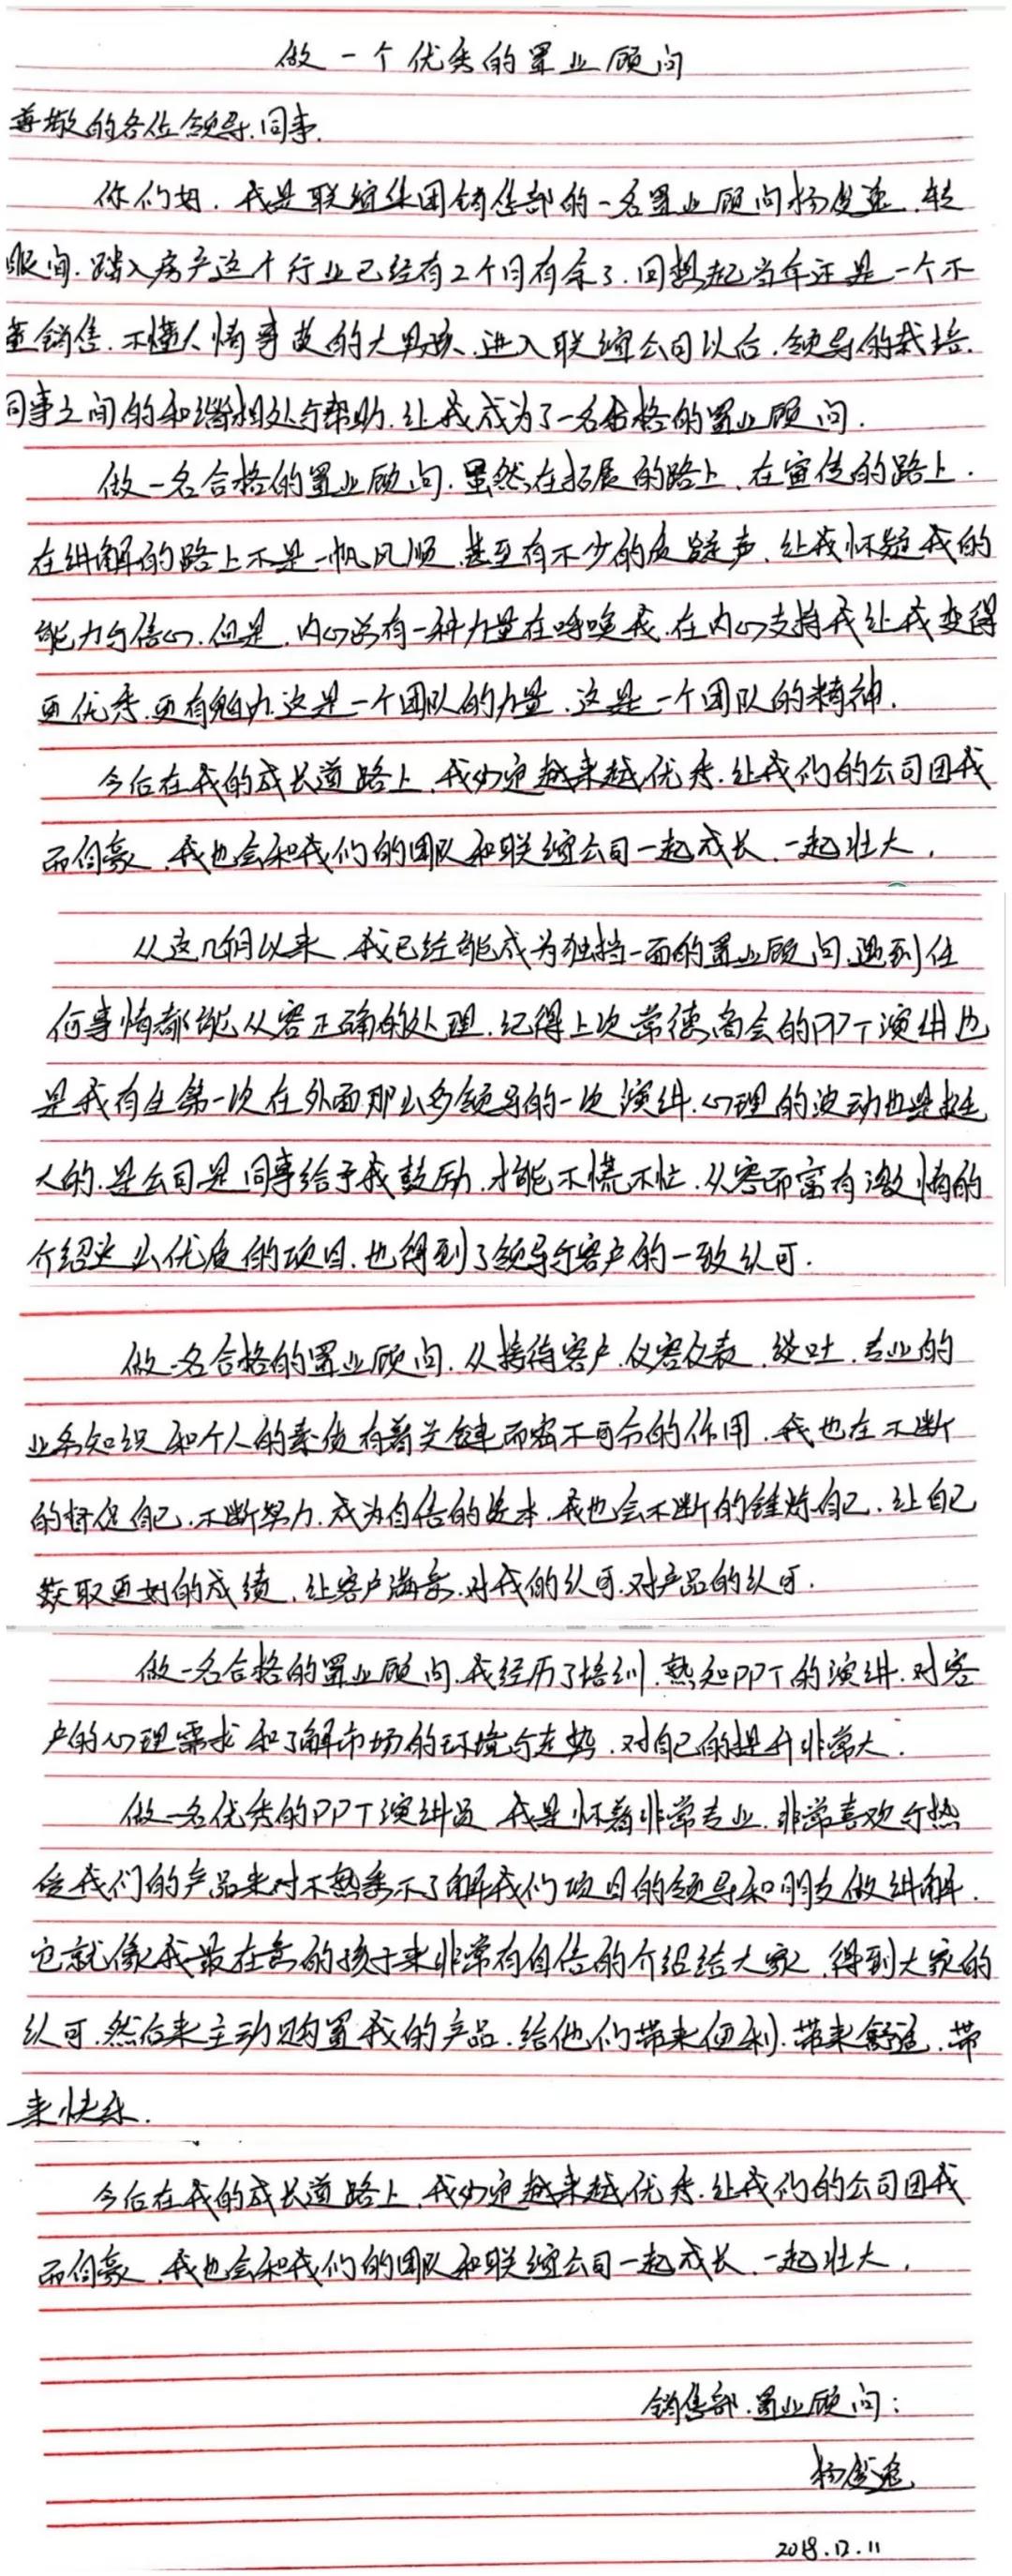 做一个优秀的置业顾问
尊敬的各位领导.同事.
你们好.我是联缔集团销售部的一名置业顾问杨俊逸.转
眼间.踏入房产这个行业已经有2个月有余了.回想起当年还是一个不
懂销售.不懂人情事故的大男孩.进入联缔公司以后.领导的栽培.
同事之间的和谐相处与帮助.让我成为了一名合格的置业顾问.
做一名合格的置业顾问.虽然在拓展的路上.在宣传的路上.
在讲解的路上不是一帆风顺.甚至有不少的质疑声.让我怀疑我的
能力与信心.但是.内心总有一种力量在呼唤我.在内心支持我让我变得
更优秀.更有魄力.这是一个团队的力量.这是一个团队的精神.
今后在我的成长道路上.我必定越来越优秀.让我们的公司因我
而自豪.我也会和我们的团队和联缔公司一起成长.一起壮大.
从这几个月以来.我已经能成为独挡一面的置业顾问.遇到任
何事情都能从容正确的处理.记得上次常德商会的PPT演讲也
是我有生第一次在外面那么多领导的一次演讲.心理的波动也是挺
大的.是公司是同事给予我鼓励.才能不慌不忙.从容而富有激情的
介绍这么优质的项目.也得到了领导与客户的一致认可.
做一名合格的置业顾问.从接待客户.仪容仪表.谈吐.专业的
业务知识和个人的素质有着关键而密不可分的作用.我也在不断
的督促自己.不断努力.成为自信的资本.我也会不断的锤炼自己.让自己
获取更好的成绩.让客户满意.对我的认可.对产品的认可.
做一名合格的置业顾问.我经历了培训.熟知PPT的演讲.对客
户的心理需求和了解市场的环境与走势.对自己的提升非常大.
做一名优秀的PPT演讲员 我是怀着非常专业.非常喜欢与热
爱我们的产品来对不熟悉不了解我们项目的领导和朋友做讲解.
它就像我最在意的孩子来非常有自信的介绍给大家.得到大家的
认可.然后来主动购置我的产品.给他们带来便利.带来舒适.带
来快乐.
今后在我的成长道路上.我必定越来越优秀.让我们的公司因我
而自豪.我也会和我们的团队和联缔公司一起成长.一起壮大.
销售部.置业顾问:
杨俊逸
2018.12.11